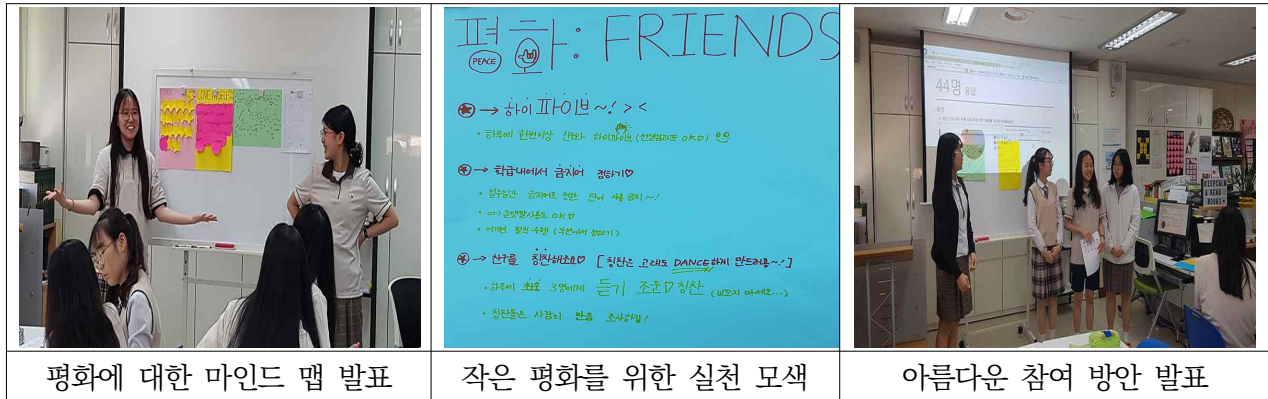 평화: FRIENDS
PEACE
→ 하이파이브~! > <
• 하루에 한번이상 친구와 하이파이브 (선생님과도 OKD)
→ 학급내에서 금지어 정하기♡
• 일주일간 금지어로 정한 단어 사용 금지~!
• or) 존댓말사용도 OK♡
• 어기면 벌칙수행!
→ 친구를 칭찬해줘요♡ [칭찬은 고래도 DANCE하게 만드러용~!]
• 하루에 최소 3명에게 듣기 조운♡칭찬 (비꼬지 마세요...)
• 칭찬들은 사람의 반응 조사하길!
44명 응답
KEEP CALM
& READ
BOOKS
평화에 대한 마인드 맵 발표
작은 평화를 위한 실천 모색
아름다운 참여 방안 발표